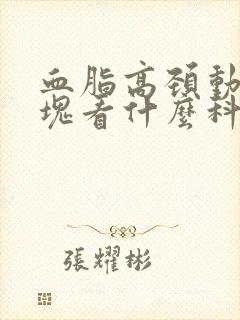 血脂高頚動
塊看什麼科
張耀彬